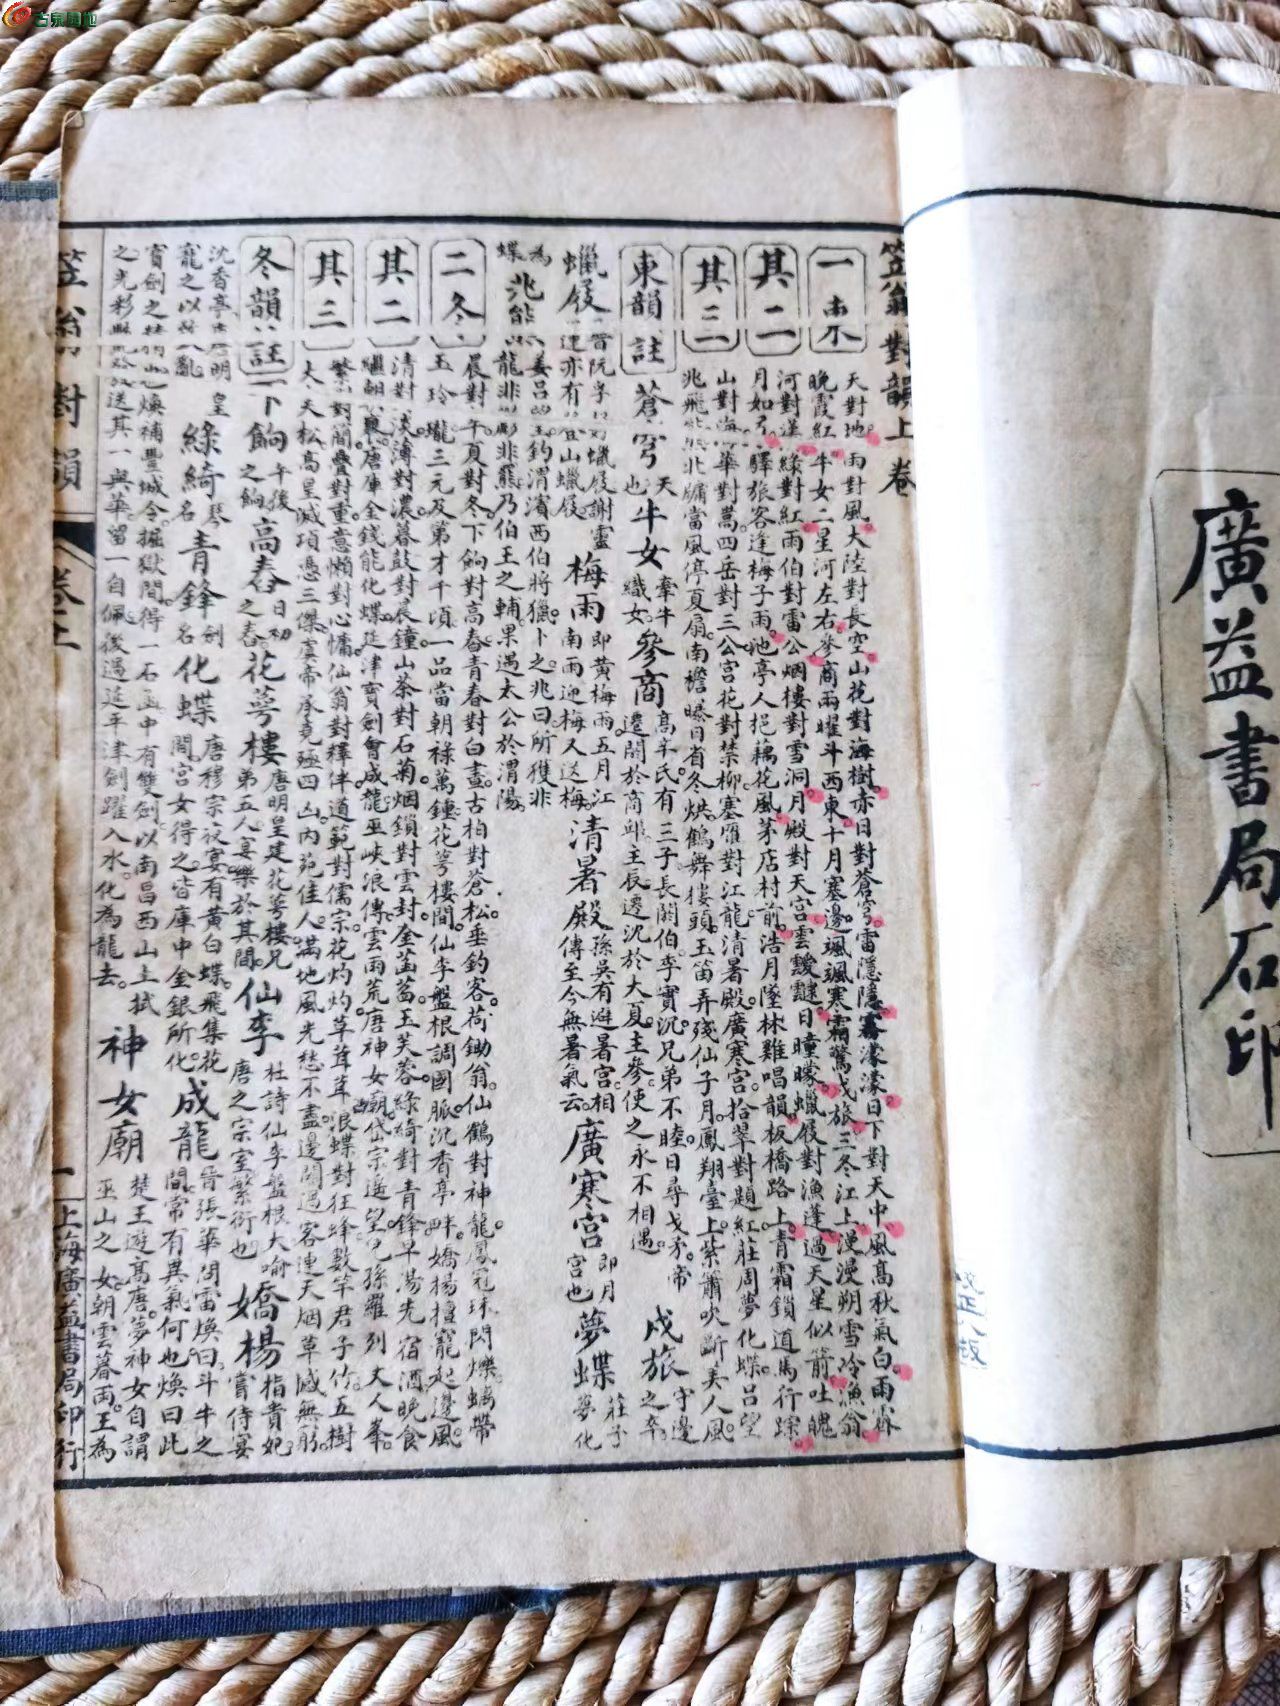 古泉園地
廣益書局石印
笠翁對韻上卷
一東
天對地雨對風大陸對長空山花對海樹赤日對蒼穹雷隱隱霧濛濛日下對天中風高秋氣白雨霽
晚霞紅牛女二星河左右參商兩曜斗西東十月塞邊颯颯寒霜驚戍旅三冬江上漫漫朔雪冷漁翁
其二
河對漢綠對紅雨伯對雷公烟樓對雪洞月殿對天宮雲靉靆日曈曚蠟屐對漁蓬過天星似箭吐魄
月如弓驛旅客逢梅子雨池亭人挹藕花風茅店村前浩月墜林雞唱韻板橋路上青霜鎖道馬行踪
其三
山對海華對嵩四岳對三公宮花對禁柳塞雁對江龍清暑殿廣寒宮拾翠對題紅莊周夢化蝶呂望
兆飛熊北牖當風停夏扇南檐曝日省冬烘鶴舞樓頭玉笛弄殘仙子月鳳翔臺上紫簫吹斷美人風
東韻註
蒼穹天也 牛女牽牛織女 參商高辛氏有三子長閼伯季實沉兄弟不睦日尋戈矛帝遷閼於商邱主辰遷沉於大夏主參使之永不相遇 戍旅守邊之卒
蠟屐晉阮孚好蠟屐謝靈運亦有登山蠟屐 梅雨即黃梅雨五月江南雨迎梅又送梅 清暑殿孫吳有避暑宮相傳至今無暑氣云 廣寒宮即月宮也 夢蝶莊子夢化
為蝶 兆熊姜呂望釣渭濱西伯將獵卜之兆曰所獲非龍非彲非羆乃伯王之輔果遇太公於渭陽
二冬
晨對午夏對冬下餉對高舂青春對白晝古柏對蒼松垂釣客荷鋤翁仙鶴對神龍鳳冠珠閃爍螭帶
玉玲瓏三元及第才千頃一品當朝祿萬鍾花萼樓間仙李盤根調國脈沉香亭畔嬌楊擅寵起邊風
其二
清對淡薄對濃暮鼓對晨鐘山茶對石菊烟鎖對雲封金菡萏玉芙蓉綠綺對青鋒早湯先宿酒晚食
繼朝饔唐庫金錢能化蝶延津寶劍會成龍巫峽浪傳雲雨荒唐神女廟岱宗遙望兒孫羅列丈人峯
其三
繁對簡疊對重意懶對心慵仙翁對釋伴道範對儒宗花灼灼草茸茸浪蝶對狂蜂數竿君子竹五樹
大夫松高皇滅項憑三傑虞帝承堯殛四凶內苑佳人滿地風光愁不盡邊關過客連天烟草感無窮
冬韻註
下餉午後之餉 高舂日初之舂 花萼樓唐明皇建花萼樓兄弟五人宴樂於其間 仙李杜詩仙李盤根大喻唐之宗室繁衍也 嬌楊指貴妃嘗侍宴
沈香亭唐明皇寵之以致亂 綠綺琴名 青鋒劍名 化蝶唐穆宗夜宴有黃白蝶飛集花間宮女得之皆庫中金銀所化 成龍晉張華問雷煥曰斗牛之間常有異氣何也煥曰此
寶劍之精也煥補豐城令掘獄間得一石函中有雙劍以南昌西山土拭之光彩艷發送其一與華留一自佩後過延平津劍躍入水化為龍去 神女廟楚王遊高唐夢神女自謂巫山之女朝雲暮雨王為
笠翁對韻
卷上
一
上海廣益書局印行